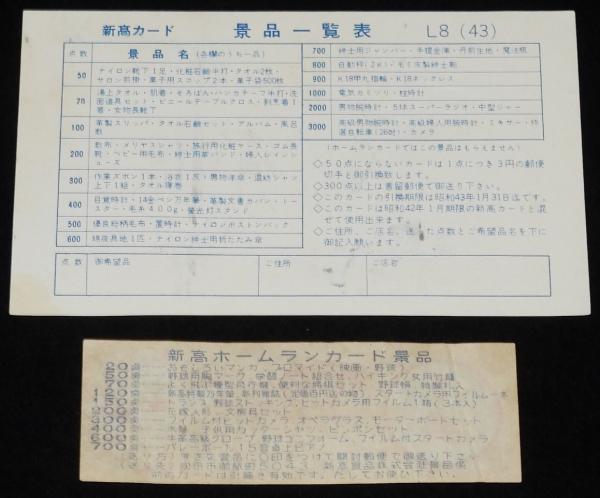 新高カード 景品一覧表 L8 (43)
点数 景品名 (各欄のうち一品)
50 ナイロン靴下1足・化粧石鹸半打・タオル2枚・
サロン前掛・菓子用スコップ2本・菓子袋500枚
70 湯上タオル・肌着・そろばん・ハンカチーフ半打・洗
面道具セット・ビニールテーブルクロス・割烹着1
着・女物長靴下
100 革製スリッパ・タオル石鹸セット・アルバム・風呂
敷
200 敷布・メリヤスシャツ・旅行用化粧ケース・ゴム長
靴・ベビー用毛布・紳士用革バンド・婦人レインシ
ューズ
300 作業ズボン1本・浴衣1反・男物洋傘・混紡シャン
上下1組・タオル寝巻
400 目覚時計・14金ペン万年筆・革製文書カバン・トー
スター・毛糸400g・螢光灯スタンド
500 優良総柄毛布・置時計・ナイロンボストンバック
600 綿夜具地1匹・ナイロン紳士用折たたみ傘
700 紳士用ジャンパー・手提金庫・丹前生地・魔法瓶
800 自動秤(2K)・毛ミ衣製紳士靴
900 K18甲丸指輪・K18ネックレス
1000 電気カミソリ・柱時計
2000 男物腕時計・5球スーパーラジオ・中型ジャー
3000 高級男物腕時計・高級婦人用腕時計・ミキサー・特
選自転車(26吋)・カメラ
(ホームランカードではこの景品はもらえません)
◇50点にならないカードは1点につき3円の郵便
切手と御引換致します。
◇300点以上は書留郵便で御送り下さい。
◇このカードの引換期限は昭和43年1月31日迄です。
◇このカードは昭和42年1月期限の新高カードと混
ぜて使用出来ます。
◇ご住所、ご店名、送った点数とご希望品名を下に
御記入願います。
点数 御希望品 ご住所 ご店名
新高ホームランカード景品
20点 おもしろいマンガ、ブロマイド(映画・野球)
50点 野球用胸マーク、学習ノート組合せ、ハイキング女用竹籠
70点 よく飛ぶ模型飛行機、便利な裁縫セット、野球帽、特製札入
120点 新高特製万年筆、新刊雑誌(定価百円迄の物)、スタートカメラ用フィルム一本
トランプ、野球ストッキング、ヒットカメラ用フィルム1箱(3本入)
200点 花嫁人形、文房具セット
300点 フイルム付ヒットカメラ、オペラグラス、モーターボートセット
400点 木馬、子供用カッターシャツ、ピンポンセット
600点 牛革高級グローブ、野球ユニフォーム、フイルム付スタートカメラ
700点 バレーボール、15音卓上ピアノ